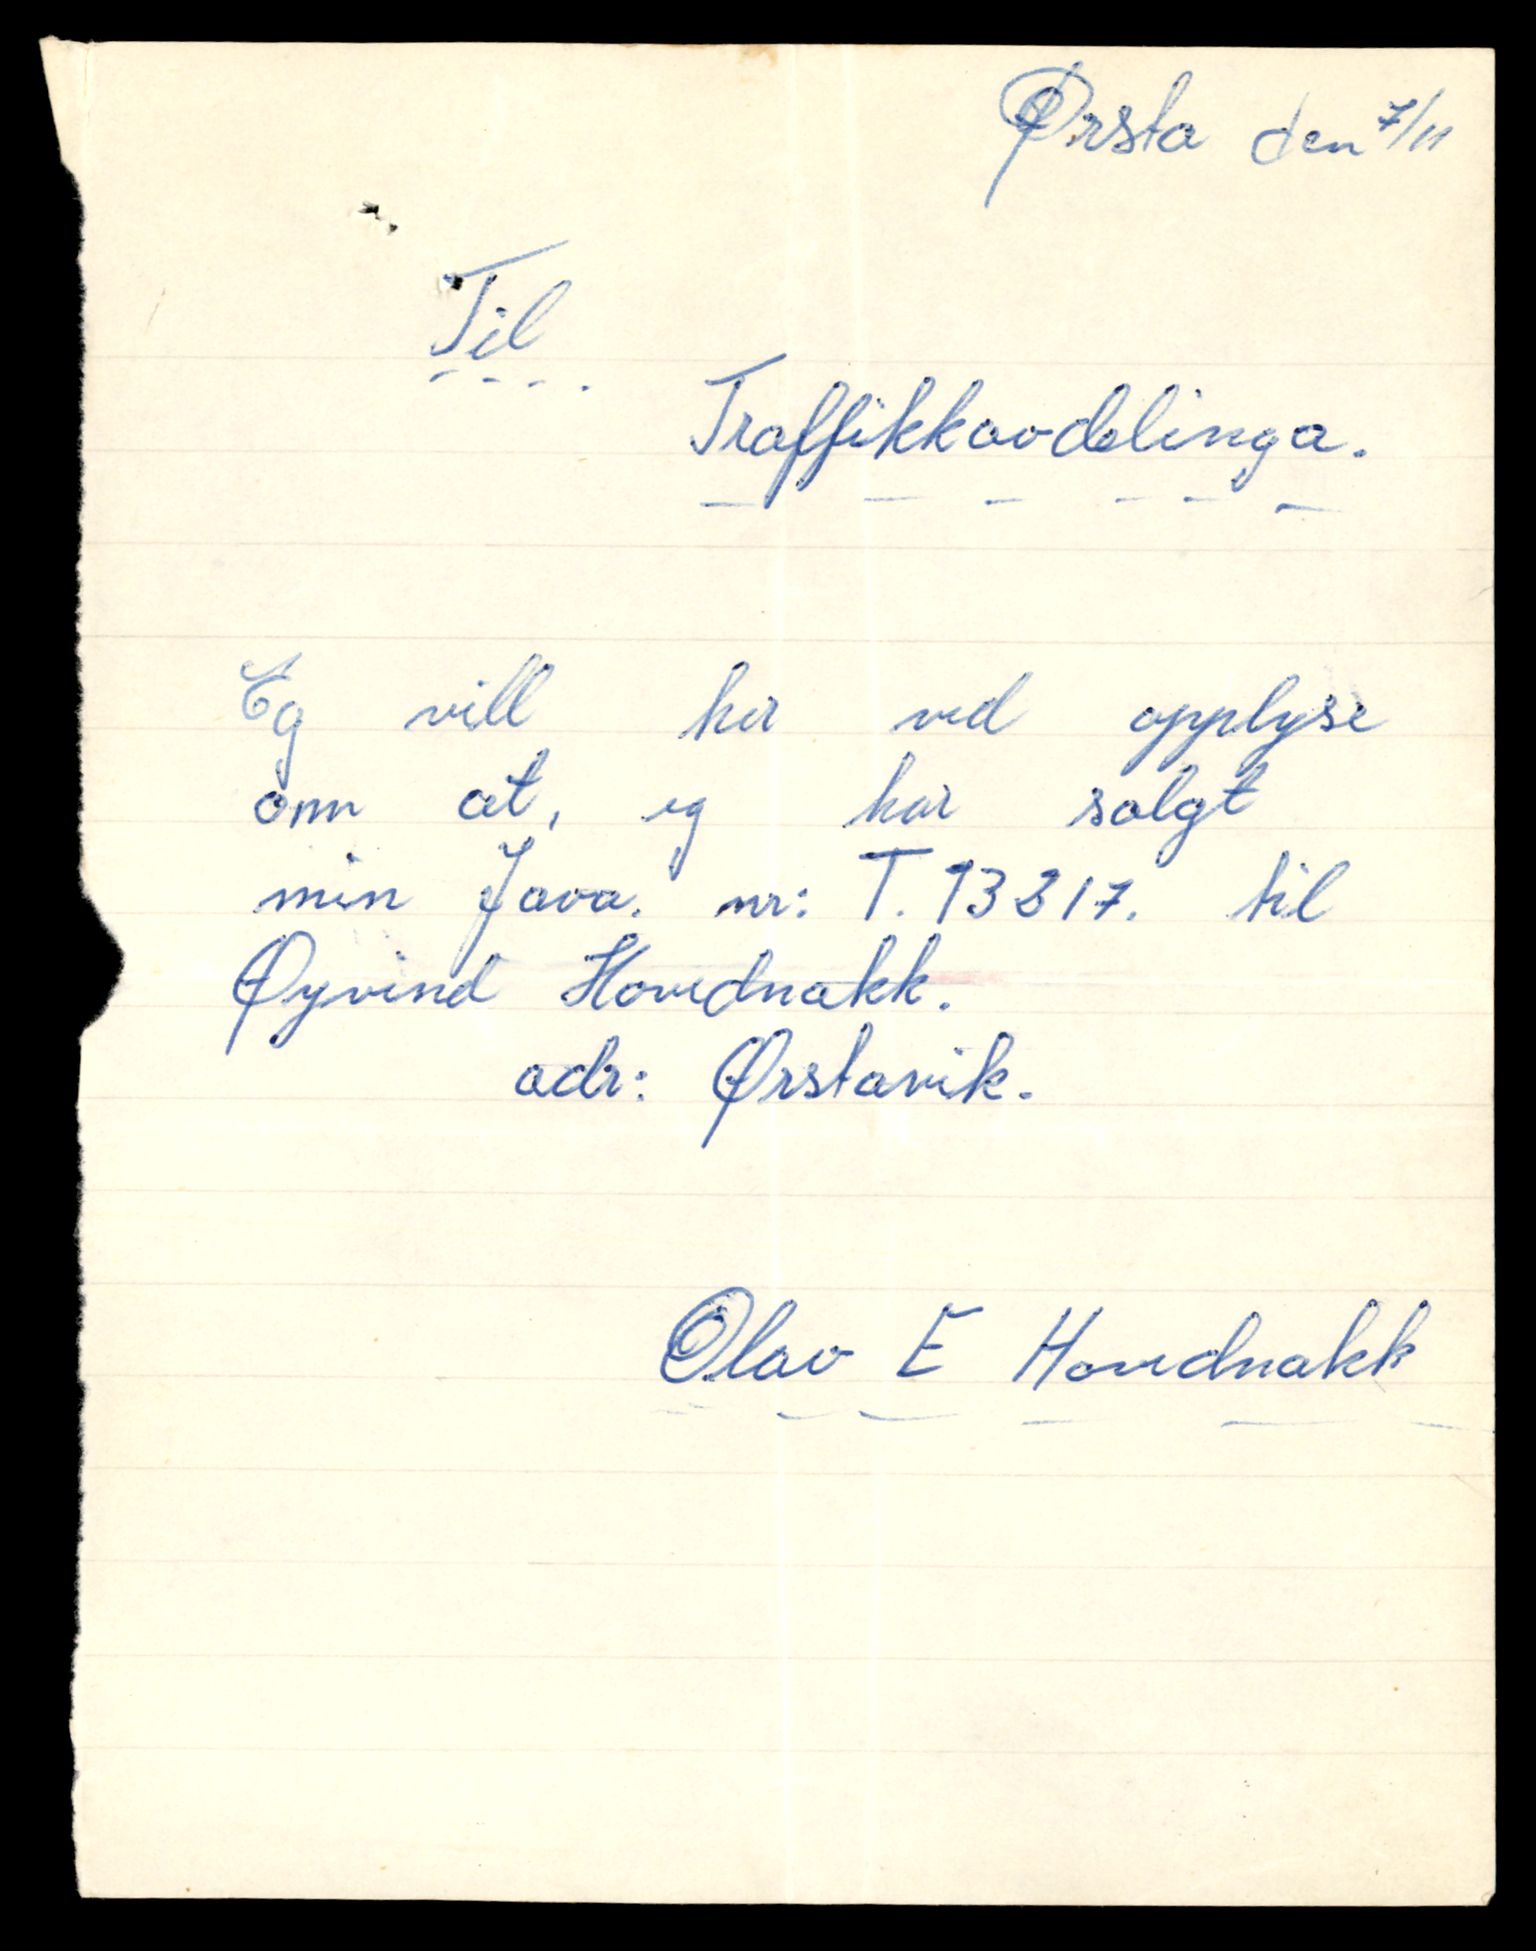 Ørsta den 7/11
Til
Traffikkavdelinga.
Eg vill her ved opplyse
om at, eg har solgt
min Java. nr: T. 13217. til
Øyvind Hovdnakk.
adr: Ørstavik.
Olav E Hovdnakk